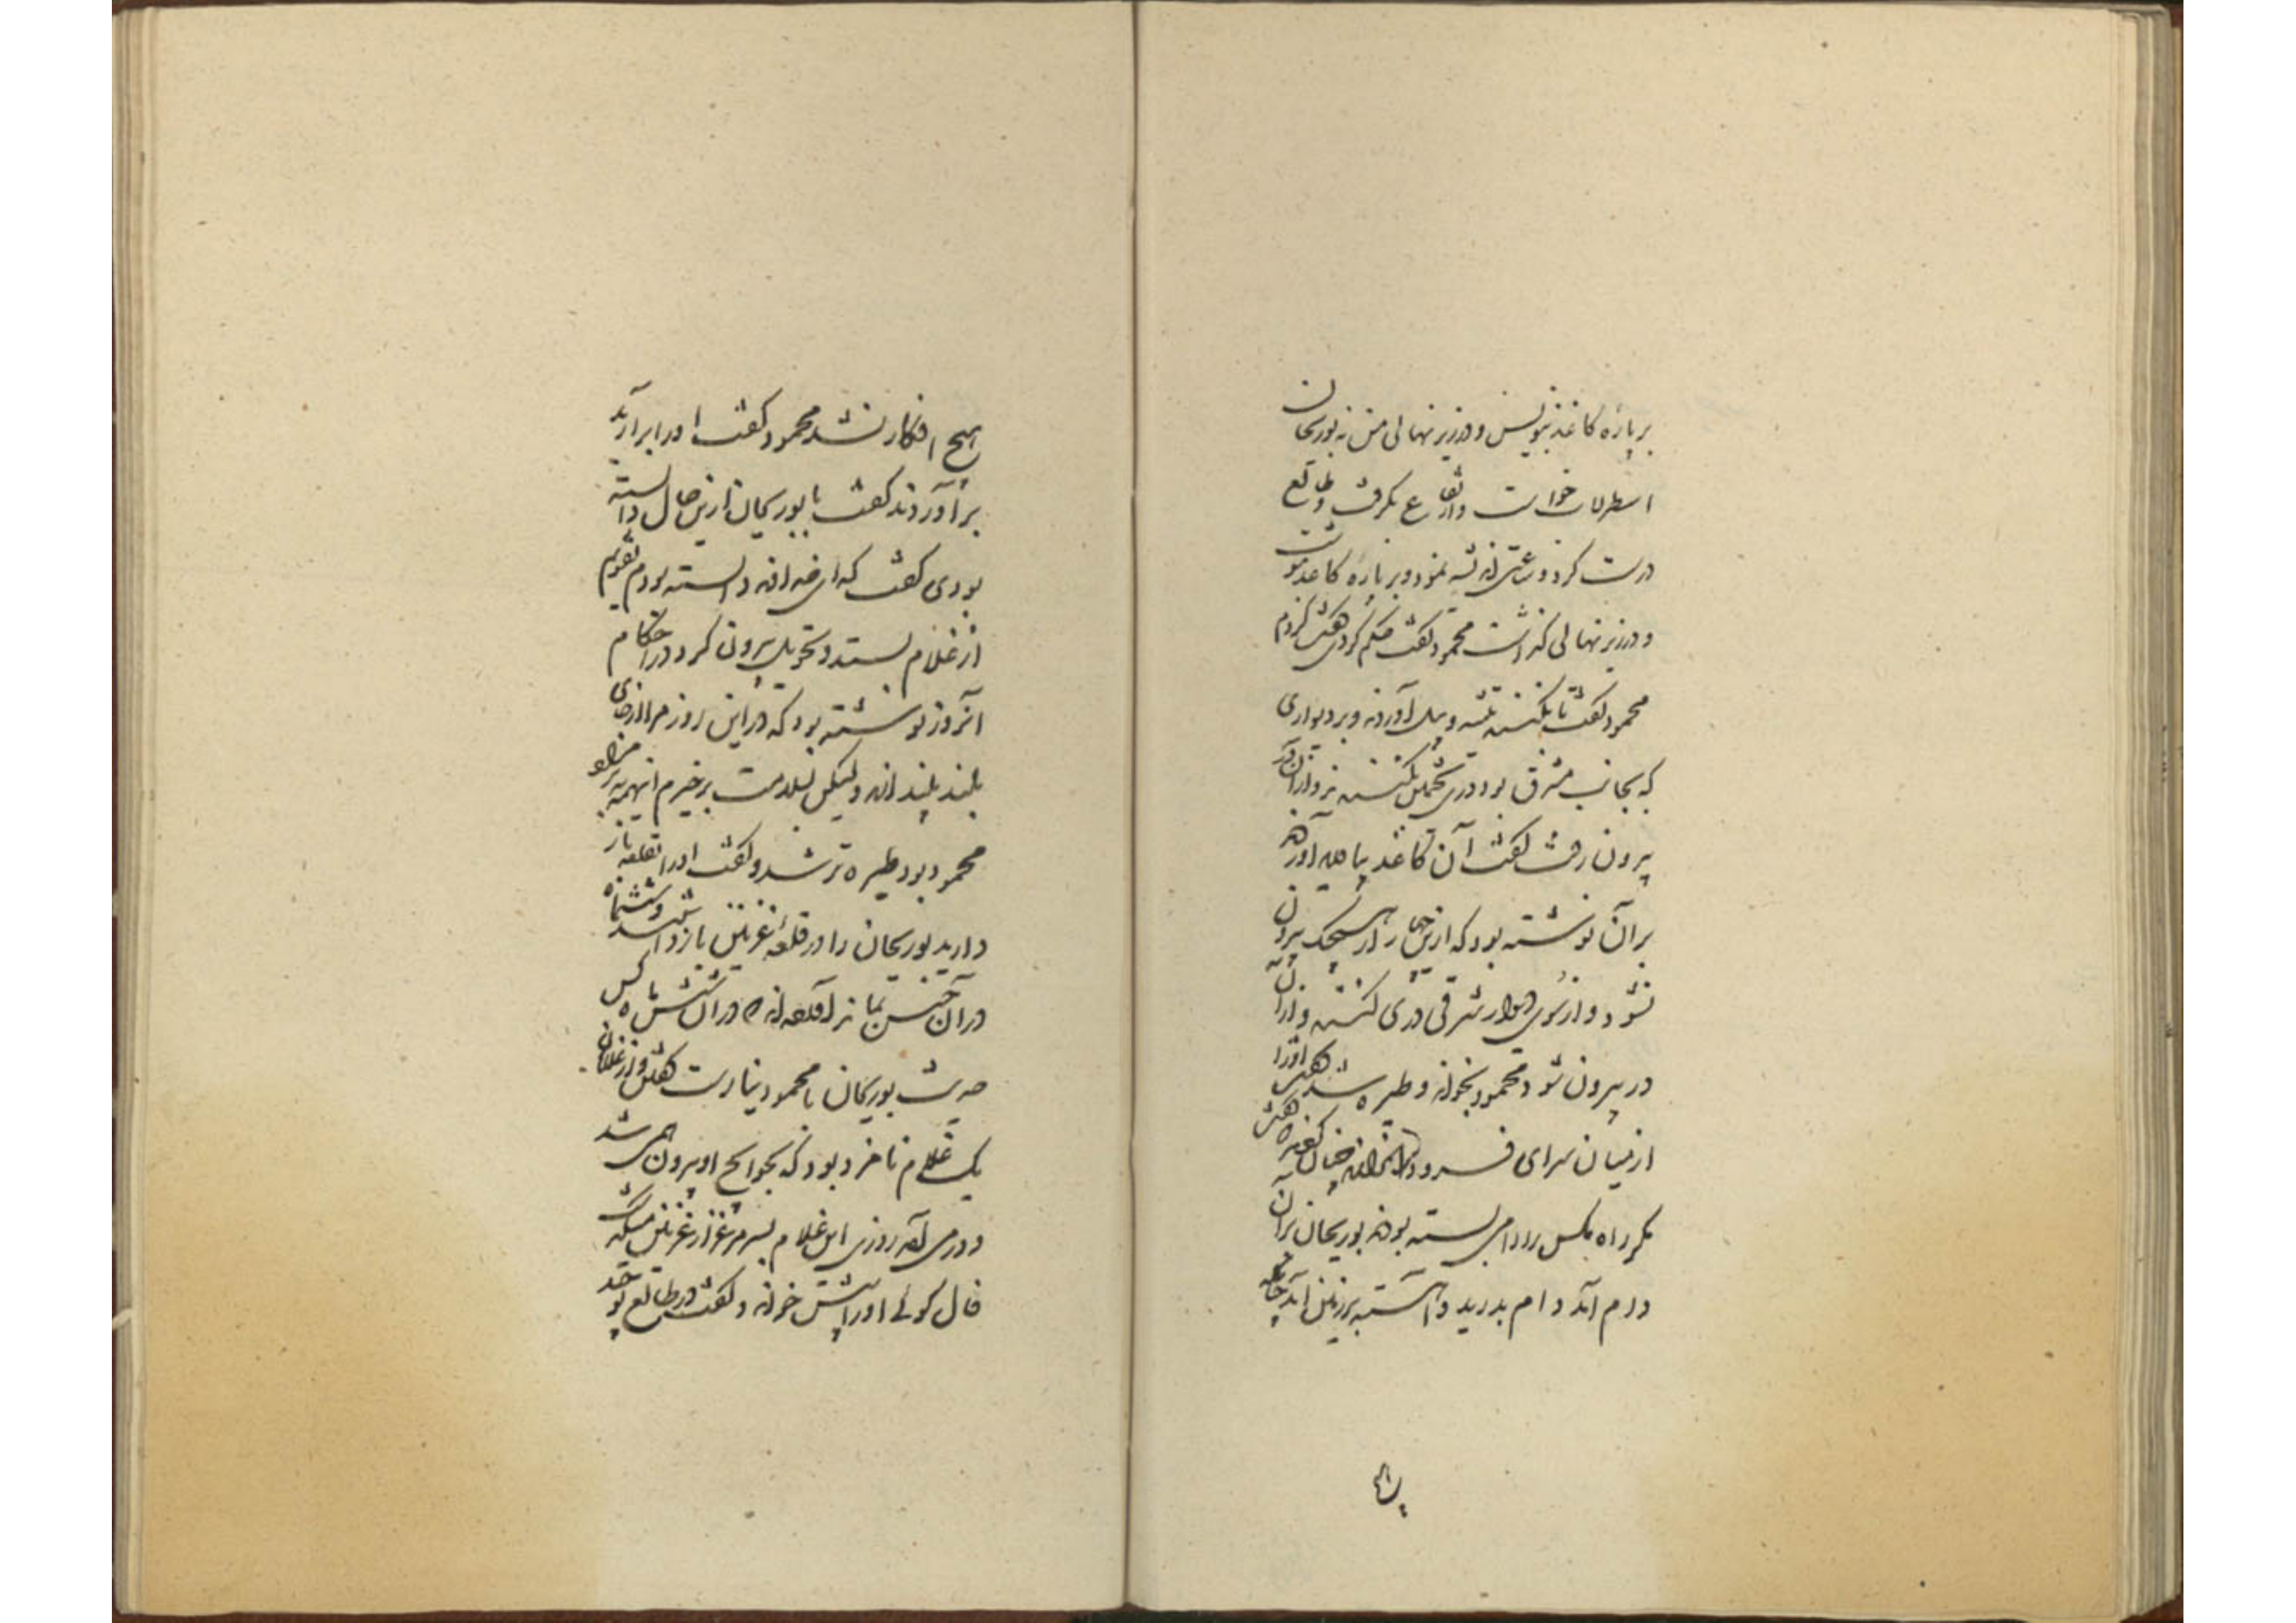 بر پاره کاغذ بنویس و در زیر نهالی من نه بوریحان
اسطرلاب خواست و ارتفاع بگرفت و طالع
درست کرد و ساعتی اندیشه نمود و بر پاره کاغذ بنوشت
و در زیر نهالی گذاشت محمود گفت حکم کردی گفت کردم
محمود گفت تا بکنند تیشه و بیل آوردند و بر دیواری
که بجانب مشرق بود دری پنجمین بکندند و از آن در
بیرون رفت گفت آن کاغذ پاره بیاورند
بر آن نوشته بود که ازین چهار در هیچیک بیرون
نشود و از سوی دیوار شرقی دری کنند و از آن
در بیرون شود محمود بخواند و طیره شد گفت او را
از میان سرای فرود اندازند چنان کردند
مگر راه بکس را دامی بسته بودند بوریحان بر آن
دام آمد دام بدرید و آهسته بر زمین آمد چنانکه
هیچ افکار نشد محمود گفت او را برآرید
برآوردند گفت یا بوریحان ازین حال دانسته
بودی گفت که ای خداوند دانسته بودم تقویم
از غلام بستد و تحویل بیرون کرد در احکام
آنروز نوشته بود که در این روز مرا از جای
بلند بیندازند ولیکن بسلامت برخیزم اینهمه نه بر مراد
محمود بود طیره تر شد و گفت او را بقلعه باز
دارید بوریحان را در قلعه غزنین بازداشتند و ششماه
در آن حبس بماند آورده‌اند که در آن شش ماه کس
حدیث بوریحان با محمود نیارست گفتن و از غلامان
یک غلام نامزد بود که بحوایج او بیرون همی شد
و درمی آمد روزی این غلام بسر مرغزار غزنین میگذشت
فال گوئی او را پیش خواند و گفت در طالع تو چند